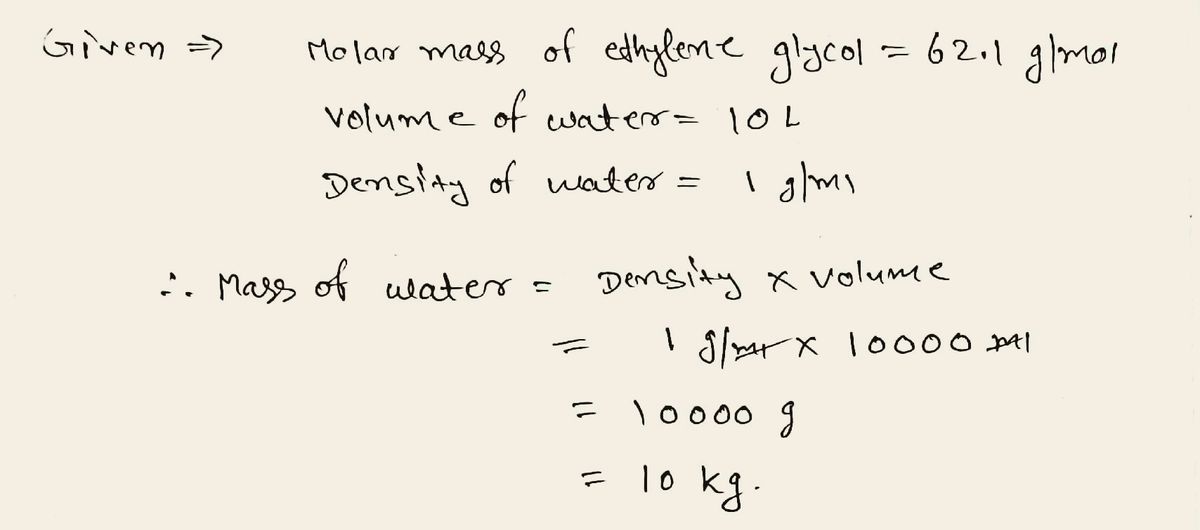 Given ⇒ Molar mass of ethylene glycol = 62.1 g/mol
Volume of water = 10 L
Density of water = 1 g/ml
∴ Mass of water = Density × volume
= 1 g/ml × 10000 ml
= 10000 g
= 10 kg.